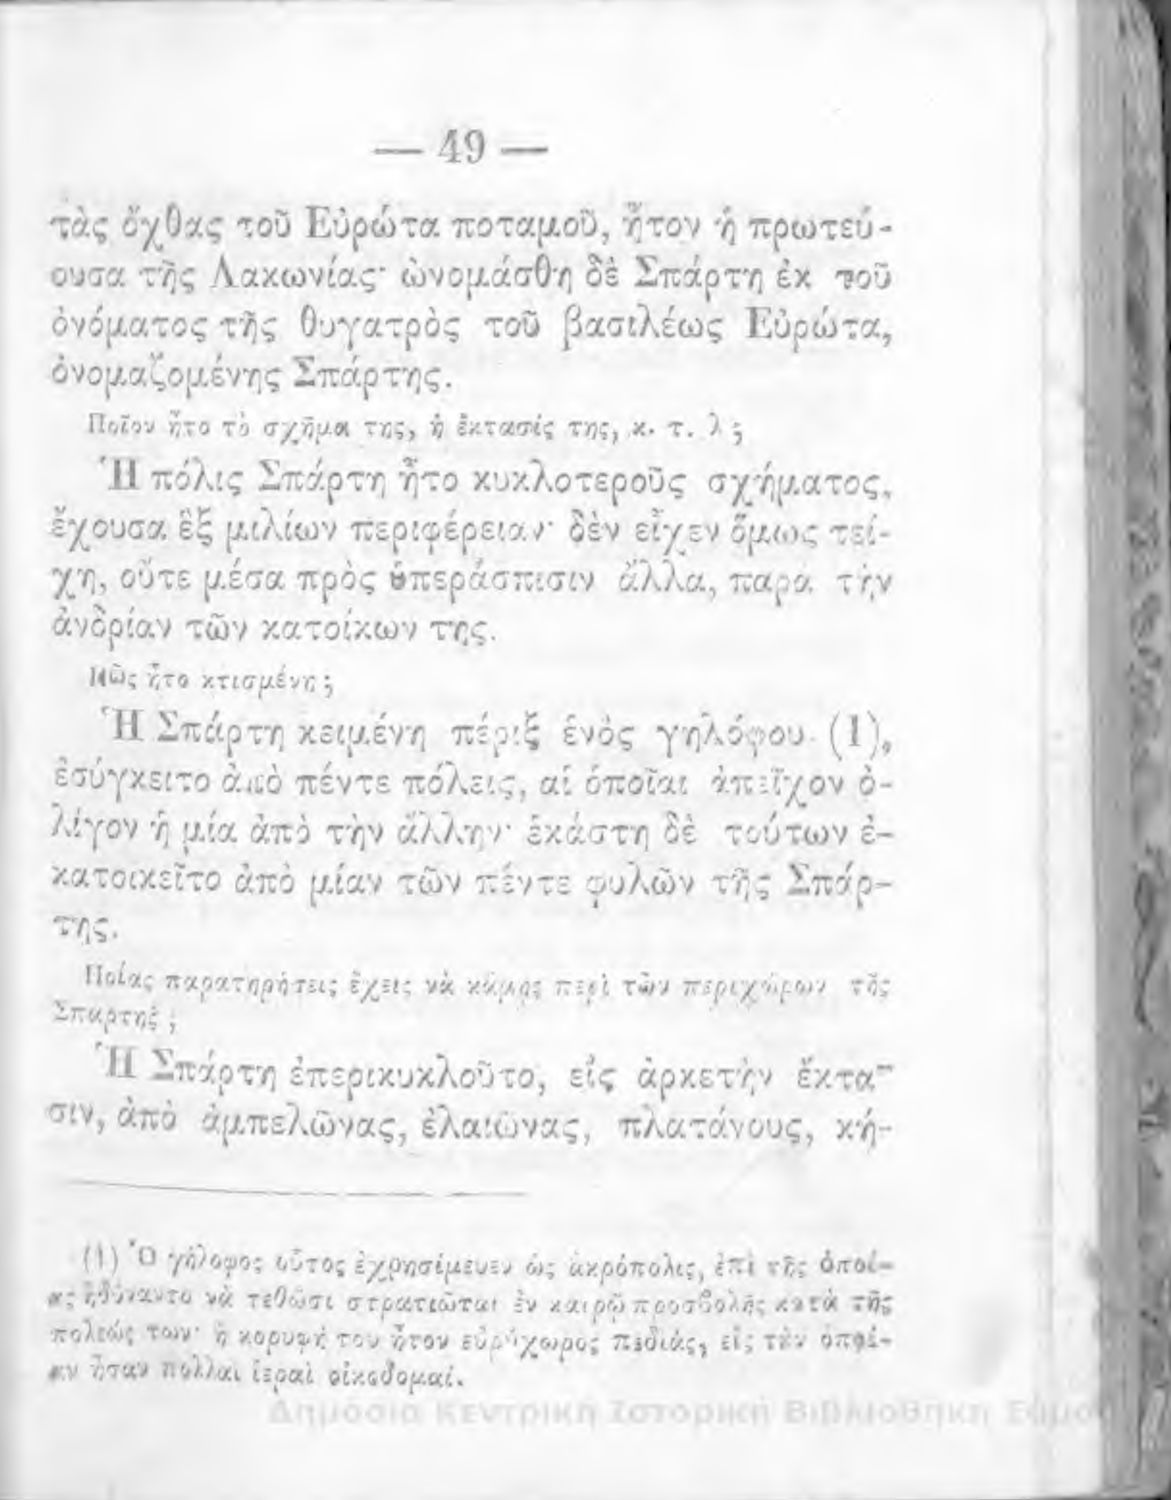 — 49 —
τὰς ὄχθας τοῦ Εὐρώτα ποταμοῦ, ἦτον ἡ πρωτεύ-
ουσα τῆς Λακωνίας· ὠνομάσθη δὲ Σπάρτη ἐκ τοῦ
ὀνόματος τῆς θυγατρὸς τοῦ βασιλέως Εὐρώτα,
ὀνομαζομένης Σπάρτης.
Ποῖον ἦτο τὸ σχῆμα της, ἡ ἔκτασίς της, κ. τ. λ ;
Ἡ πόλις Σπάρτη ἦτο κυκλοτεροῦς σχήματος,
ἔχουσα ἓξ μιλίων περιφέρειαν· δὲν εἶχεν ὅμως τεί-
χη, οὔτε μέσα πρὸς ὑπεράσπισιν ἄλλα, παρα τὴν
ἀνδρίαν τῶν κατοίκων της.
Πῶς ἦτο κτισμένη ;
Ἡ Σπάρτη κειμένη πέριξ ἑνὸς γηλόφου (1),
ἐσύγκειτο ἀπὸ πέντε πόλεις, αἱ ὁποῖαι ἀπεῖχον ὀ-
λίγον ἡ μία ἀπὸ τὴν ἄλλην· ἑκάστη δὲ τούτων ἐ-
κατοικεῖτο ἀπὸ μίαν τῶν πέντε φυλῶν τῆς Σπάρ-
της.
Ποίας παρατηρήσεις ἔχεις νὰ κάμῃς περὶ τῶν περιχώρων τῆς
Σπαρτης ;
Ἡ Σπάρτη ἐπερικυκλοῦτο, εἰς ἀρκετὴν ἔκτα-
σιν, ἀπὸ ἀμπελῶνας, ἐλαιῶνας, πλατάνους, κή-
(1) Ὁ γήλοφος οὗτος ἐχρησίμευεν ὡς ἀκρόπολις, ἐπὶ τῆς ὁποί-
ας ἠδύναντο νὰ τεθῶσι στρατιῶται ἐν καιρῷ προσβολῆς κατὰ τῆς
πολεώς των· ἡ κορυφή του ἦτον εὐρύχωρος πεδιάς, εἰς τὴν ὁποί-
αν ἦσαν πολλαι ἱεραὶ οἰκοδομαί.
Δημόσια Κεντρική Ιστορική Βιβλιοθήκη